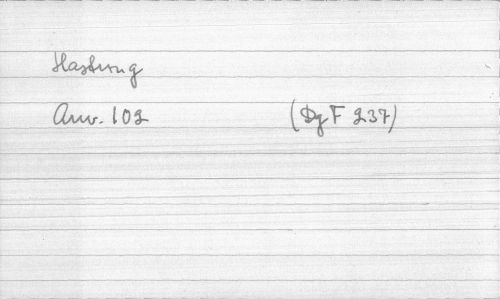 Hastrung
Anv. 102 (DgF 237)